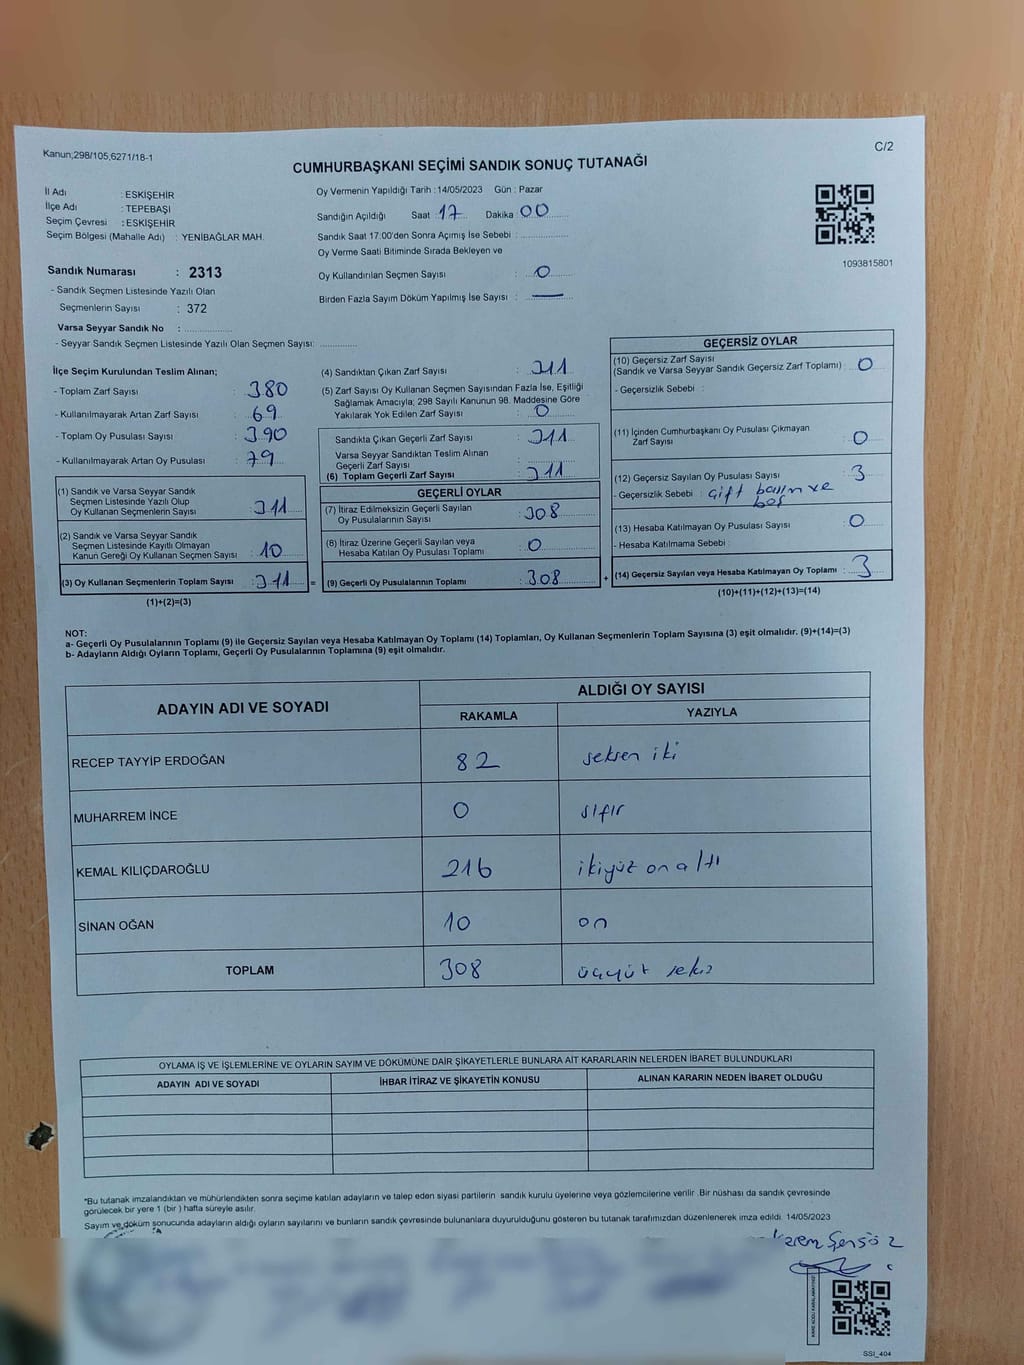 Kanun;298/105,6271/18-1
C/2
CUMHURBAŞKANI SEÇİMİ SANDIK SONUÇ TUTANAĞI
İl Adı : ESKİŞEHİR
İlçe Adı : TEPEBAŞI
Seçim Çevresi : ESKİŞEHİR
Seçim Bölgesi (Mahalle Adı) : YENİBAĞLAR MAH.
Oy Vermenin Yapıldığı Tarih : 14/05/2023 Gün : Pazar
Sandığın Açıldığı Saat 17 Dakika 00
Sandık Saat 17:00'den Sonra Açımış İse Sebebi :
Oy Verme Saati Bitiminde Sırada Bekleyen ve
Oy Kullandırılan Seçmen Sayısı : 0
Birden Fazla Sayım Döküm Yapılmış İse Sayısı : —
1093815801
Sandık Numarası : 2313
- Sandık Seçmen Listesinde Yazılı Olan
Seçmenlerin Sayısı : 372
Varsa Seyyar Sandık No :
- Seyyar Sandık Seçmen Listesinde Yazılı Olan Seçmen Sayısı:
İlçe Seçim Kurulundan Teslim Alınan;
- Toplam Zarf Sayısı : 380
- Kullanılmayarak Artan Zarf Sayısı : 69
- Toplam Oy Pusulası Sayısı : 390
- Kullanılmayarak Artan Oy Pusulası : 79
(1) Sandık ve Varsa Seyyar Sandık
Seçmen Listesinde Yazılı Olup
Oy Kullanan Seçmenlerin Sayısı : 311
(2) Sandık ve Varsa Seyyar Sandık
Seçmen Listesinde Kayıtlı Olmayan
Kanun Gereği Oy Kullanan Seçmen Sayısı : 10
(3) Oy Kullanan Seçmenlerin Toplam Sayısı : 311
(1)+(2)=(3)
(4) Sandıktan Çıkan Zarf Sayısı : 311
(5) Zarf Sayısı Oy Kullanan Seçmen Sayısından Fazla İse, Eşitliği
Sağlamak Amacıyla; 298 Sayılı Kanunun 98. Maddesine Göre
Yakılarak Yok Edilen Zarf Sayısı : 0
Sandıkta Çıkan Geçerli Zarf Sayısı : 311
Varsa Seyyar Sandıktan Teslim Alınan
Geçerli Zarf Sayısı
(6) Toplam Geçerli Zarf Sayısı : 311
GEÇERLİ OYLAR
(7) İtiraz Edilmeksizin Geçerli Sayılan
Oy Pusulalarının Sayısı : 308
(8) İtiraz Üzerine Geçerli Sayılan veya
Hesaba Katılan Oy Pusulası Toplamı : 0
= (9) Geçerli Oy Pusulalarının Toplamı : 308
GEÇERSİZ OYLAR
(10) Geçersiz Zarf Sayısı
(Sandık ve Varsa Seyyar Sandık Geçersiz Zarf Toplamı) : 0
- Geçersizlik Sebebi :
(11) İçinden Cumhurbaşkanı Oy Pusulası Çıkmayan
Zarf Sayısı : 0
(12) Geçersiz Sayılan Oy Pusulası Sayısı : 3
- Geçersizlik Sebebi : Çift basın ve
boş
(13) Hesaba Katılmayan Oy Pusulası Sayısı : 0
- Hesaba Katılmama Sebebi :
+ (14) Geçersiz Sayılan veya Hesaba Katılmayan Oy Toplamı : 3
(10)+(11)+(12)+(13)=(14)
NOT:
a- Geçerli Oy Pusulalarının Toplamı (9) ile Geçersiz Sayılan veya Hesaba Katılmayan Oy Toplamı (14) Toplamları, Oy Kullanan Seçmenlerin Toplam Sayısına (3) eşit olmalıdır. (9)+(14)=(3)
b- Adayların Aldığı Oyların Toplamı, Geçerli Oy Pusulalarının Toplamına (9) eşit olmalıdır.
ADAYIN ADI VE SOYADI ALDIĞI OY SAYISI
RAKAMLA YAZIYLA
RECEP TAYYİP ERDOĞAN 82 seksen iki
MUHARREM İNCE 0 sıfır
KEMAL KILIÇDAROĞLU 216 ikiyüz on altı
SİNAN OĞAN 10 on
TOPLAM 308 üçyüz sekiz
OYLAMA İŞ VE İŞLEMLERİNE VE OYLARIN SAYIM VE DÖKÜMÜNE DAİR ŞİKAYETLERLE BUNLARA AİT KARARLARIN NELERDEN İBARET BULUNDUKLARI
ADAYIN ADI VE SOYADI İHBAR İTİRAZ VE ŞİKAYETİN KONUSU ALINAN KARARIN NEDEN İBARET OLDUĞU
*Bu tutanak imzalandıktan ve mühürlendikten sonra seçime katılan adayların ve talep eden siyasi partilerin sandık kurulu üyelerine veya gözlemcilerine verilir .Bir nüshası da sandık çevresinde
görülecek bir yere 1 (bir ) hafta süreyle asılır.
Sayım ve döküm sonucunda adayların aldığı oyların sayılarını ve bunların sandık çevresinde bulunanlara duyurulduğunu gösteren bu tutanak tarafımızdan düzenlenerek imza edildi. 14/05/2023
Kerem Şensöz
SSI_404